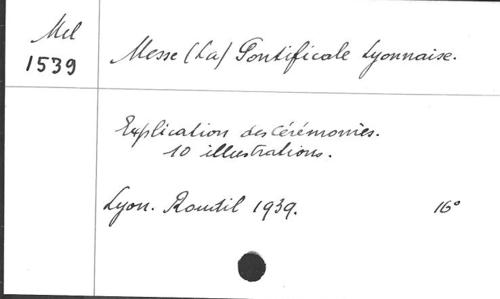 Mel
1539
Messe (La) Pontificale Lyonnaise.
Explication des Cérémonies.
10 illustrations.
Lyon. Roudil 1939. 16°